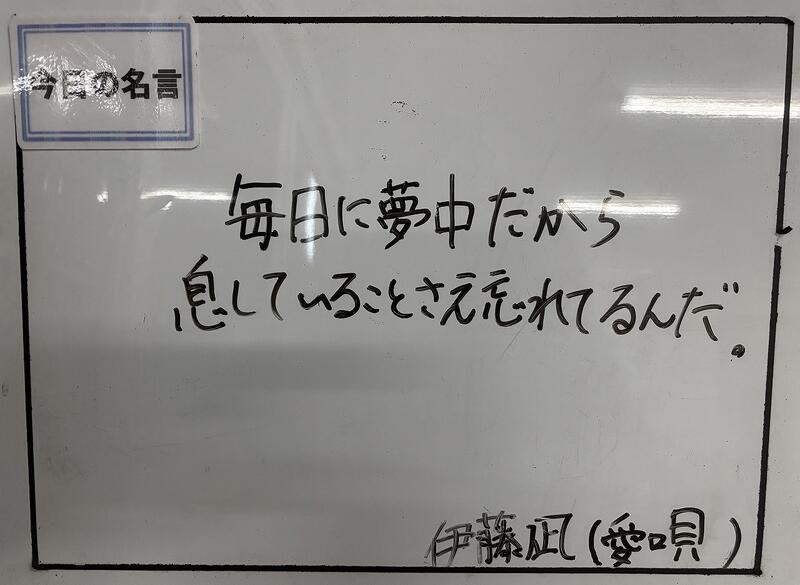 今日の名言
毎日に夢中だから
息していることさえ忘れてるんだ。
伊藤凪(愛唄)